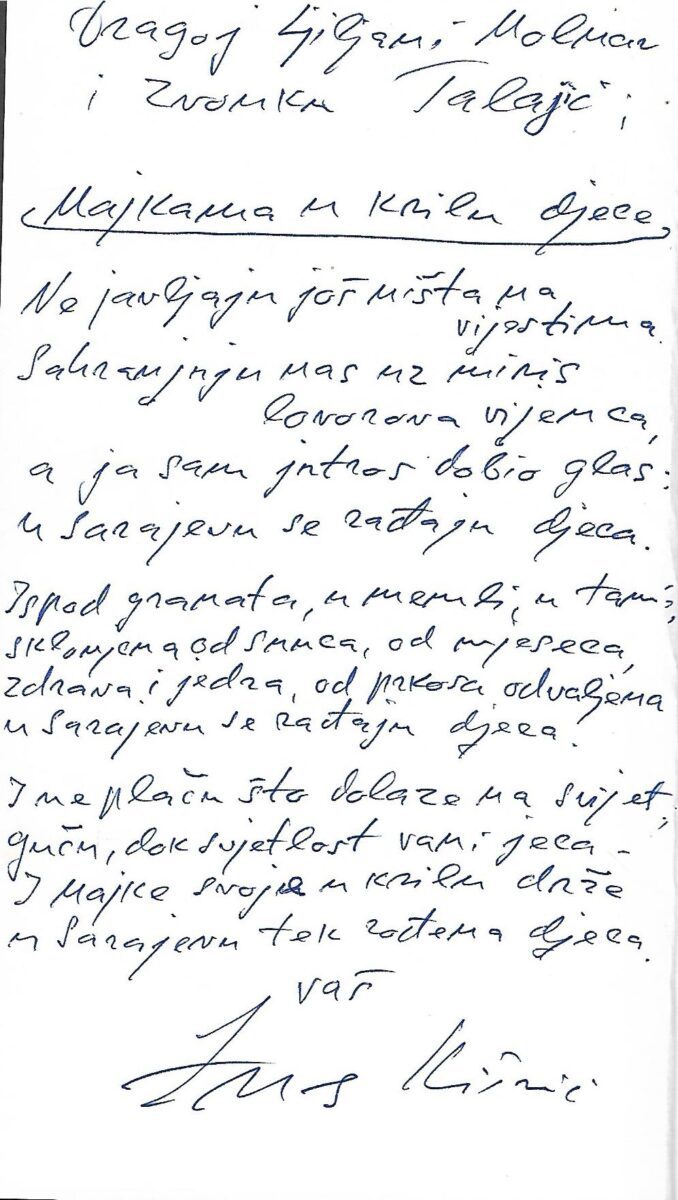 Dragoj Ljiljani Molnar
i Zvonku Talajić;
Majkama u krilu djece,
Ne javljaju još ništa na
vijestima.
Sahranjuju nas uz miris
lovorova vijenca,
a ja sam jutros dobio glas:
u Sarajevu se rađaju djeca.
Ispod granata, u memli, u tami,
sklonjena od sunca, od mjeseca,
zdrava i jedra, od prkosa odvaljena
u Sarajevu se rađaju djeca.
I ne plaču što dolaze na svijet,
guču, dok svjetlost vani jeca –
I majke svoje u krilu drže
u Sarajevu tek rođena djeca.
vaš